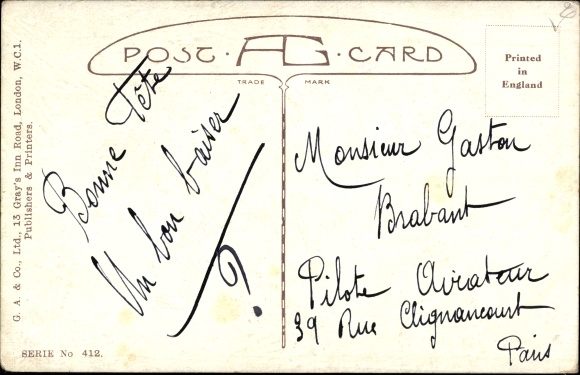 POST · AG · CARD
TRADE MARK
Printed
in
England
G. A. & Co., Ltd., 13 Gray's Inn Road, London, W.C.1.
Publishers & Printers.
Bonne Fête
Un bon baiser
?
Monsieur Gaston
Brabant
Pilote Aviateur
39 Rue Clignancourt
Paris
SERIE No 412.